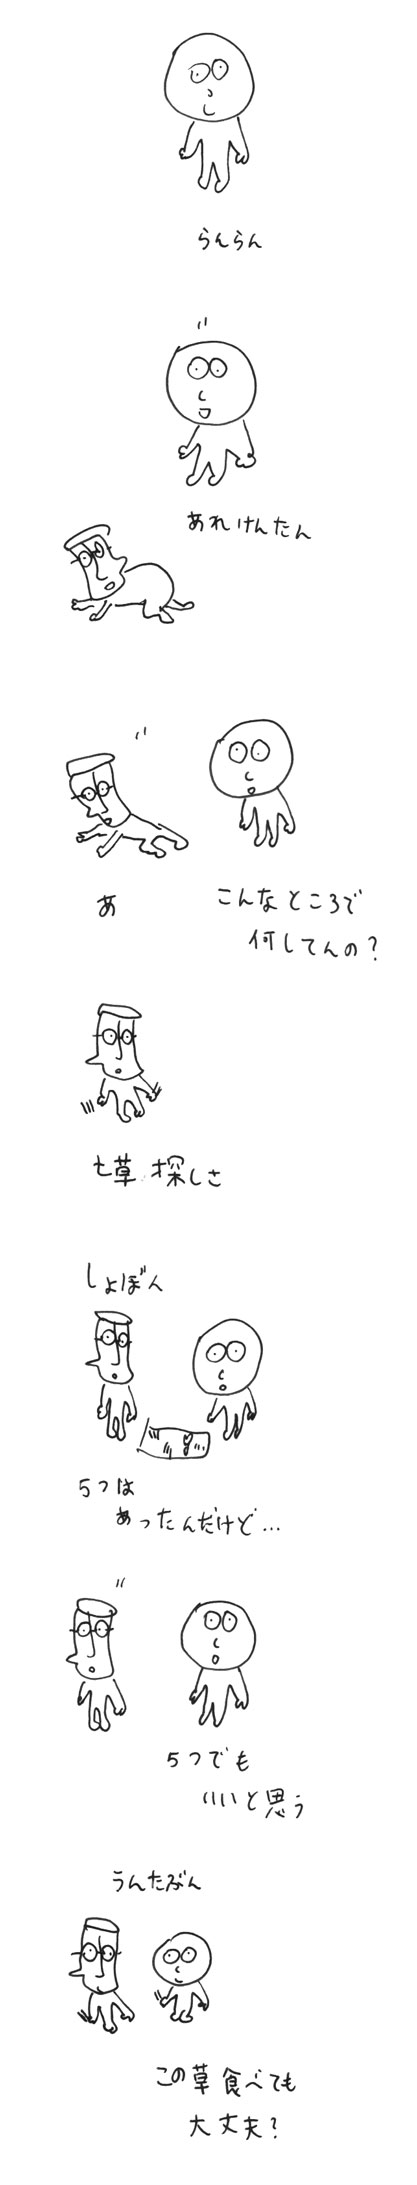 らんらん
あれけんたん
あ
こんなところで
何してんの?
七草探しさ
しょぼん
5つは
あったんだけど…
5つでも
いいと思う
うんたぶん
この草食べても
大丈夫?